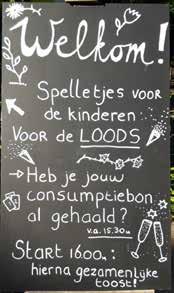 Welkom!
Spelletjes voor
de kinderen
Voor de LOODS
→ Heb je jouw
consumptiebon
al gehaald?
v.a. 15.30u
Start 16.00u:
hierna gezamenlijke
toost!